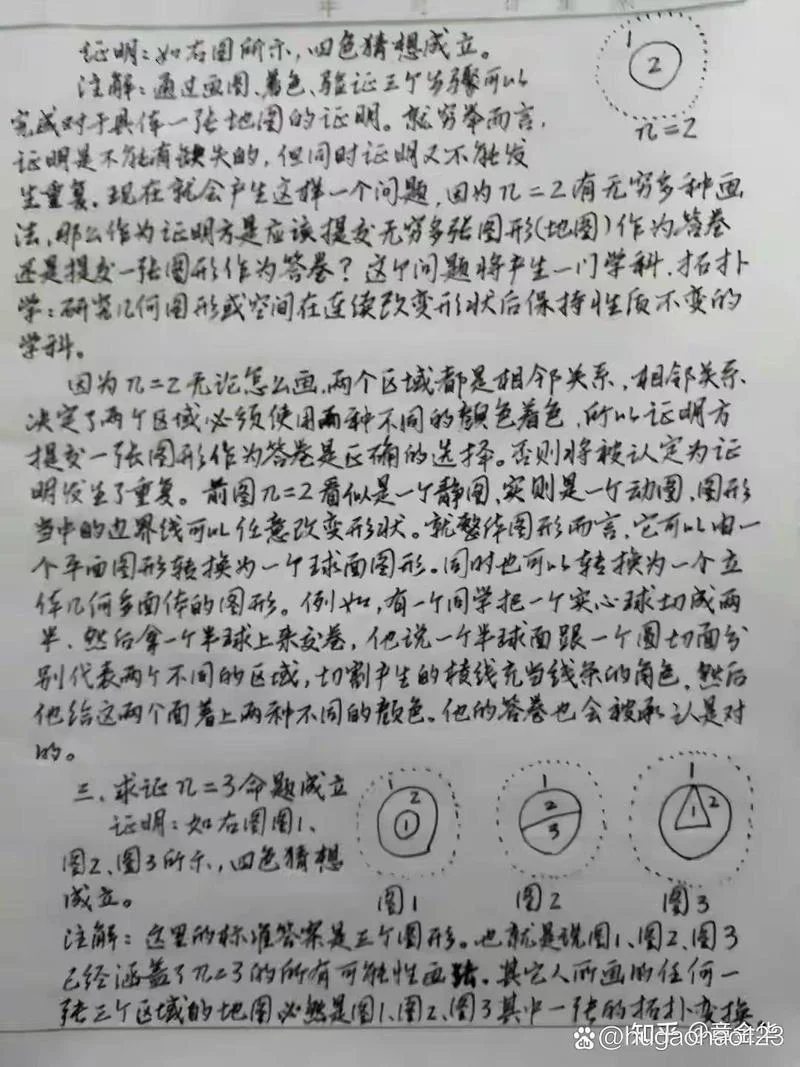 证明：如右图所示，四色猜想成立。
1
2
n=2
注解：通过画图、着色、验证三个步骤可以
完成对于具体一张地图的证明。就穷举而言，
证明是不能有缺失的，但同时证明又不能发
生重复。现在就会产生这样一个问题，因为n=2有无穷多种画
法，那么作为证明方是应该提交无穷多张图形(地图)作为答卷
还是提交一张图形作为答卷？这个问题将产生一门学科，拓扑
学：研究几何图形或空间在连续改变形状后保持性质不变的
学科。
因为n=2无论怎么画，两个区域都是相邻关系，相邻关系
决定了两个区域必须使用两种不同的颜色着色，所以证明方
提交一张图形作为答卷是正确的选择。否则将被认定为证
明发生了重复。前图n=2看似是一个静图，实则是一个动图，图形
当中的边界线可以任意改变形状。就整体图形而言，它可以由一
个平面图形转换为一个球面图形。同时也可以转换为一个立
体几何多面体的图形。例如，有一个同学把一个实心球切成两
半，然后拿一个半球上来交卷，他说一个半球面跟一个圆切面分
别代表两个不同的区域，切割产生的棱线充当线条的角色，然后
他给这两个面着上两种不同的颜色。他的答卷也会被承认是对
的。
三、求证n=3命题成立
证明：如右图图1、
图2、图3所示，四色猜想
成立。
1
2
1
图1
1
2
3
图2
1
2
1
图3
注解：这里的标准答案是三个图形。也就是说图1、图2、图3
已经涵盖了n=3的所有可能性画法。其它人所画的任何一
张三个区域的地图必然是图1、图2、图3其中一张的拓扑变换
知乎 @章金华
@hugaohao123